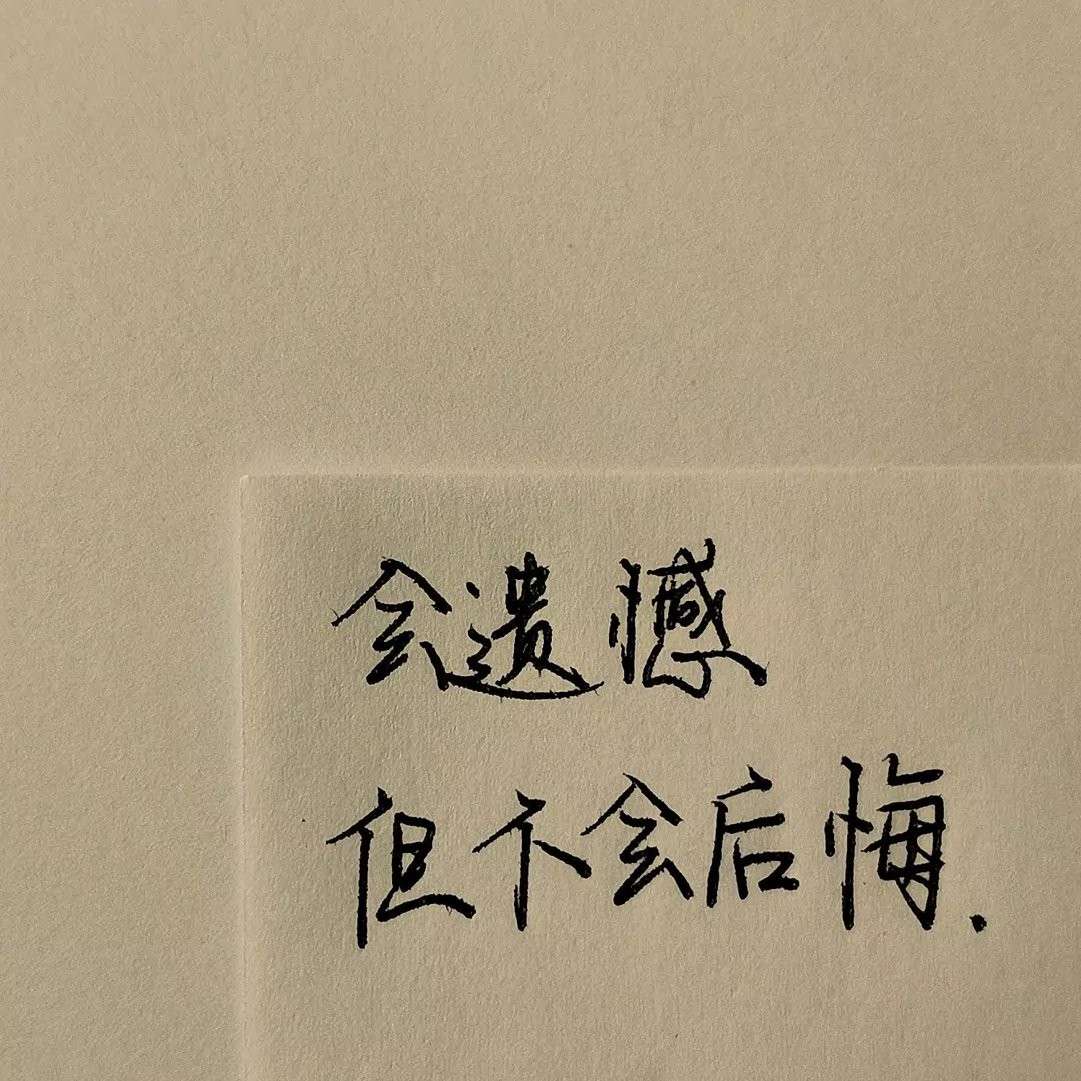 会遗憾
但不会后悔.